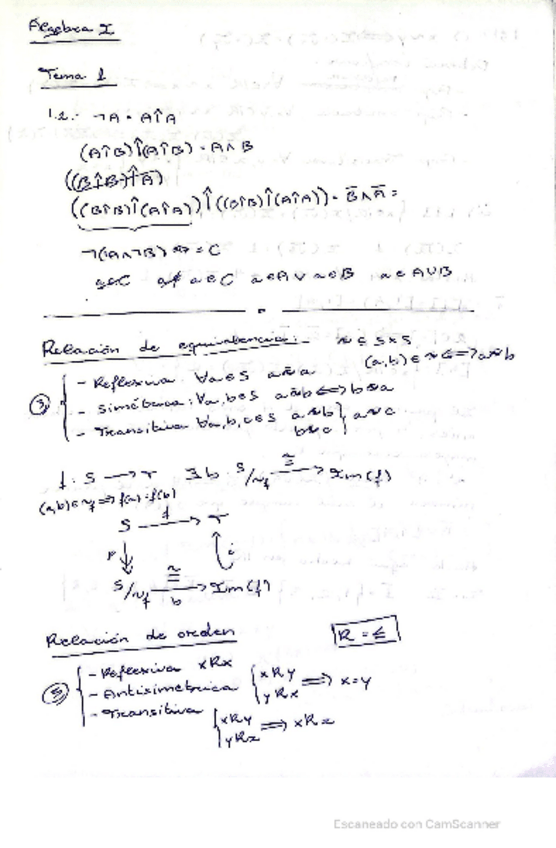 Álgebra I
Tema 1
1.2.- ¬A = A↑A
(A↑B)↑(A↑B) = A∧B
((B↑B)↑Ā)
((B↑B)↑(A↑A))↑((B↑B)↑(A↑A)) = B̄∧Ā =
¬(¬A∧¬B) = C
a∈C a∈A ∨ a∈B a∈A∪B
Relación de equivalencia.- ~ ⊆ S×S
(a,b)∈~ <=> a~b
- Reflexiva: ∀a∈S a~a
③ - Simétrica: ∀a,b∈S a~b <=> b~a
- Transitiva ∀a,b,c∈S a~b } a~c
b~c
f: S → T ∃ b: S/~f ≅→ Im(f)
(a,b)∈~f => f(a)=f(b)
S f→ T
p i
S/~f ≅→ Im(f)
b
Relación de orden R = ≤
- Reflexiva xRx
③ - Antisimétrica { xRy
yRx => x=y
- Transitiva { xRy
yRz => xRz
Escaneado con CamScanner